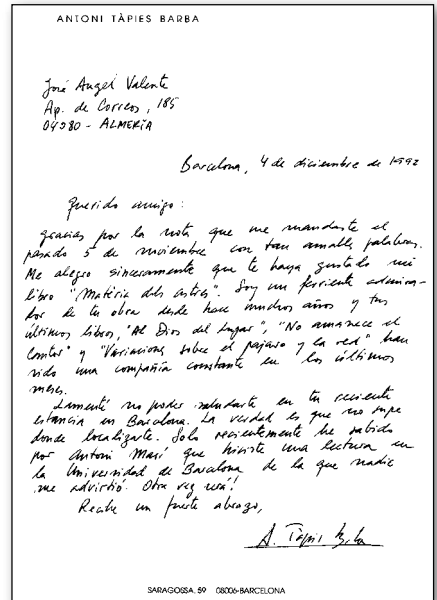 ANTONI TÀPIES BARBA
José Angel Valente
Ap. de Correos, 185
04080 - ALMERÍA
Barcelona, 4 de diciembre de 1992
Querido amigo:
gracias por la nota que me mandaste el
pasado 5 de noviembre con tan amables palabras.
Me alegro sinceramente que te haya gustado mi
libro "Matèria dels astres". Soy un ferviente admira-
dor de tu obra desde hace muchos años y tus
últimos libros, "Al Dios del lugar", "No amanece el
cantor" y "Variaciones sobre el pájaro y la red" han
sido una compañía constante en los últimos
meses.
Lamenté no poder saludarte en tu reciente
estancia en Barcelona. La verdad es que no supe
donde localizarte. Solo recientemente he sabido
por Antoni Marí que hiciste una lectura en
la Universidad de Barcelona de la que nadie
me advirtió. Otra vez será!
Recibe un fuerte abrazo,
A. Tàpies Barba
SARAGOSSA, 59 08006-BARCELONA